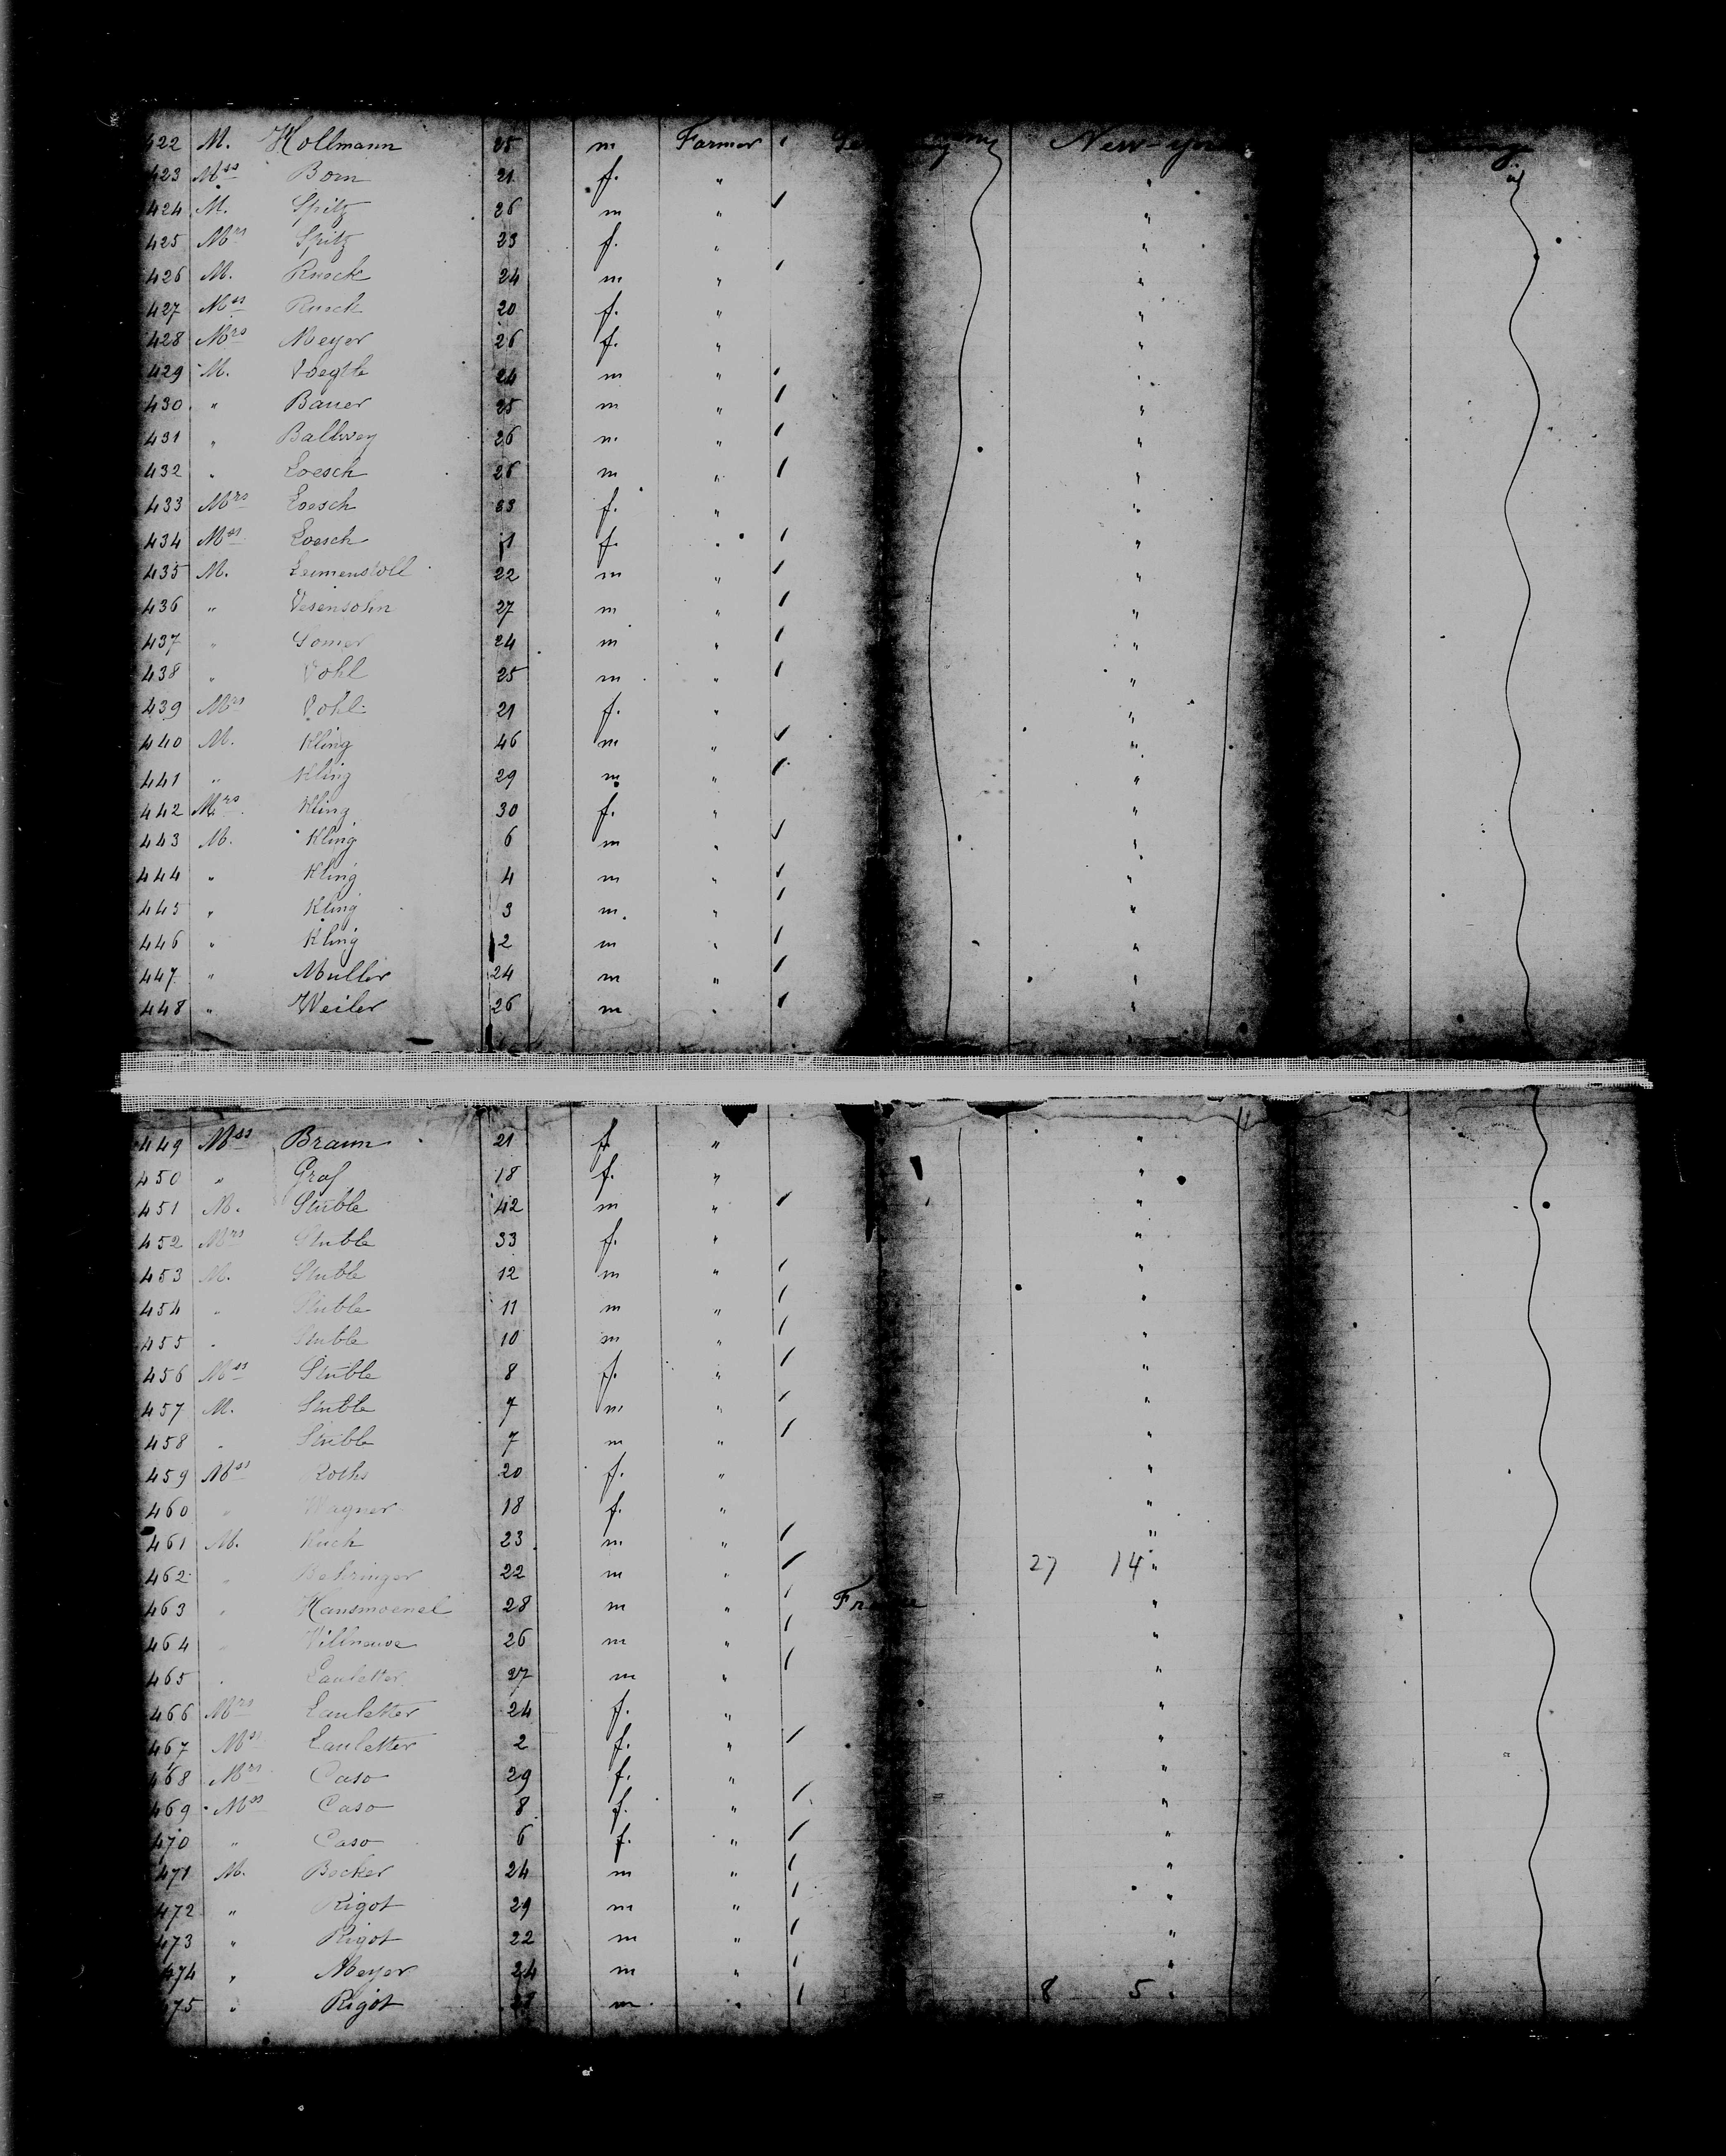 422 M. Hollmann 25 m Farmer Germany New-York
423 Mss Born 21 f. "
424 M. Spitz 26 m " "
425 Mrs Spitz 23 f. " "
426 M. Ruock 24 m " "
427 Mss Ruock 20 f. " "
428 Mrs Meyer 26 f. " "
429 M. Voegtle 24 m " "
430 " Bauer 25 m " "
431 " Ballwey 26 m " "
432 " Loesch 26 m " "
433 Mrs Loesch 23 f. " "
434 Mss Loesch 1 f. " "
435 M. Leimenstoll 22 m " "
436 " Vesensohn 27 m " "
437 " Somer 24 m " "
438 " Vohl 25 m " "
439 Mrs Vohl 21 f. " "
440 M. Kling 46 m " "
441 " Kling 29 m " "
442 Mrs Kling 30 f. " "
443 M. Kling 6 m " "
444 " Kling 4 m " "
445 " Kling 3 m. " "
446 " Kling 2 m " "
447 " Muller 24 m " "
448 " Weiler 26 m " "
449 Mss Braun 21 f. " "
450 " Graf 18 f. " "
451 M. Stuble 42 m " "
452 Mrs Stuble 33 f. " "
453 M. Stuble 12 m " "
454 " Stuble 11 m " "
455 " Stuble 10 m " "
456 Mss Stuble 8 f. " "
457 M. Stuble 7 m " "
458 " Stuble 7 m " "
459 Mss Roths 20 f. " "
460 " Wagner 18 f. " "
461 M. Ruch 23 m " "
462 " Behringer 22 m " 27 14 "
463 " Hansmoenel 28 m " France "
464 " Villneuve 26 m " "
465 " Lauletter 27 m " "
466 Mrs Lauletter 24 f. " "
467 Mss Lauletter 2 f. " "
468 Mrs Caso 29 f. " "
469 Mss Caso 8 f. " "
470 " Caso 6 f. " "
471 M. Becker 24 m " "
472 " Rigot 29 m " "
473 " Rigot 22 m " "
474 " Meyer 24 m " "
475 " Rigot m " 8 5 "